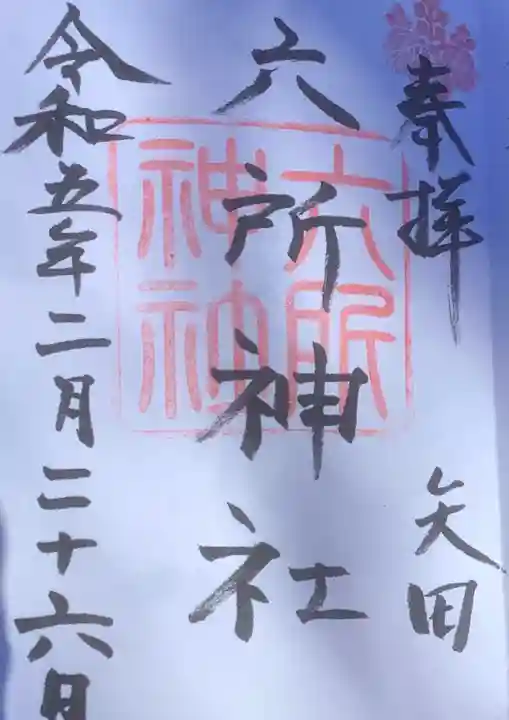 奉拝 矢田
六所神社
六所神社
令和五年二月二十六日